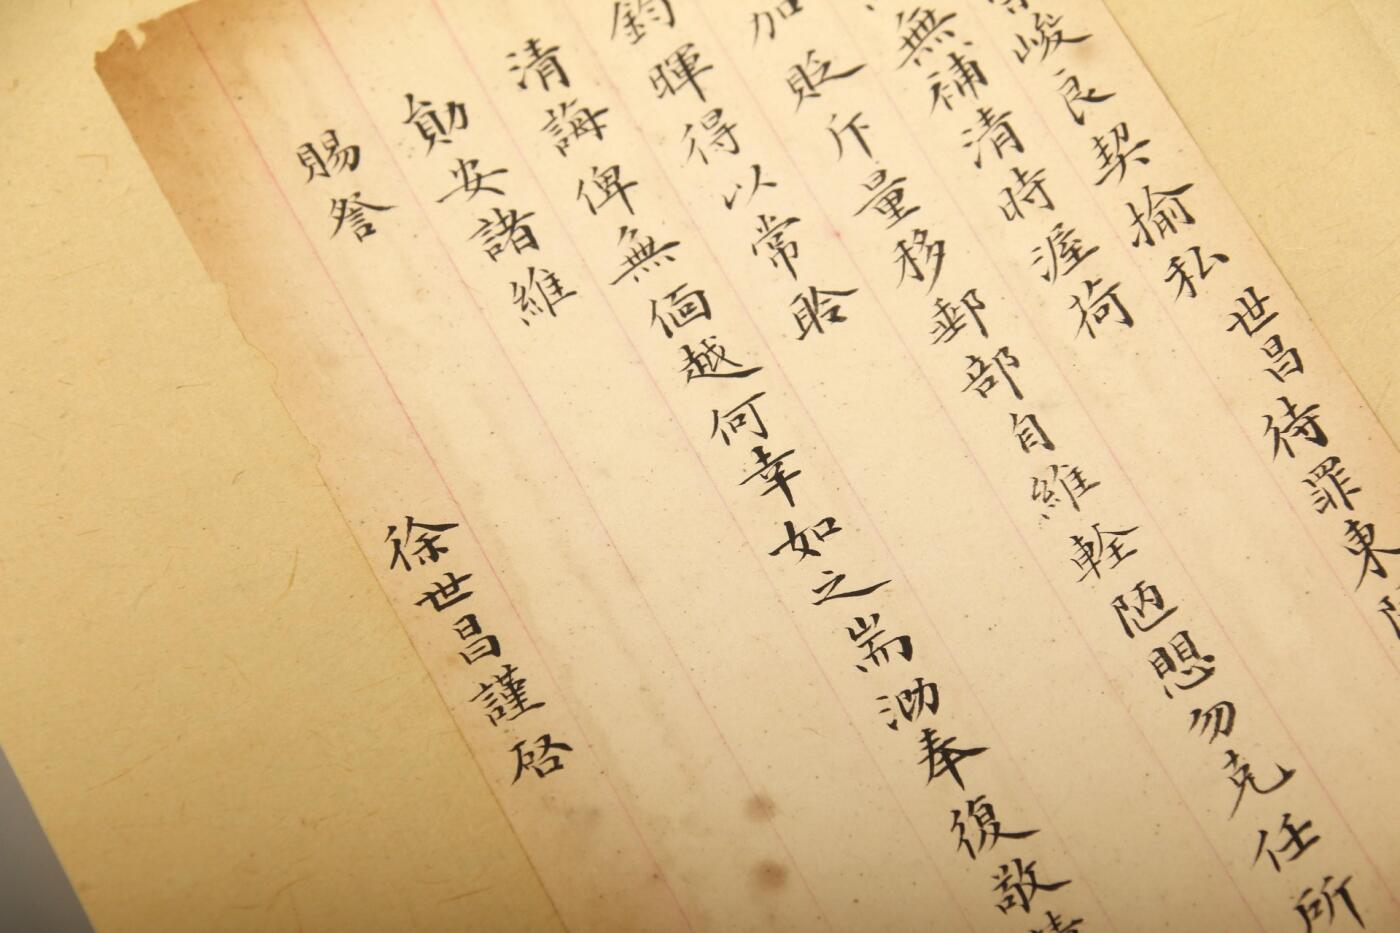 峻良契揄私世昌待罪東
無補清時渥荷
加貶斥量移郵部自維輇陋愳勿克任所
鈞暉得以常聆
清誨俾無偭越何幸如之耑泐奉復敬
勛安諸維
賜詧
徐世昌謹啓